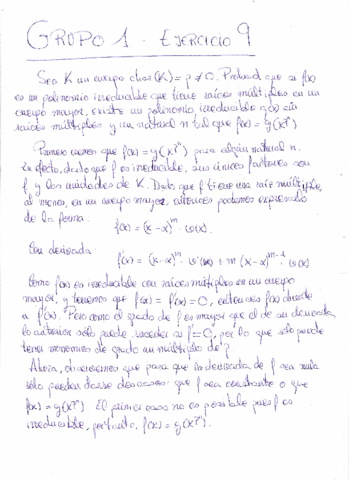 GRUPO 1 - EJERCICIO 9
Sea K un cuerpo char(K) = p ≠ 0. Probad que si f(x)
es un polinomio irreducible que tiene raíces múltiples en un
cuerpo mayor, existe un polinomio irreducible g(x) sin
raíces múltiples y un natural n tal que f(x) = g(x^pⁿ)
Primero vemos que f(x) = g(x^pⁿ) para algún natural n.
En efecto, dado que f es irreducible, sus únicos factores son
f y las unidades de K. Dado que f tiene una raíz múltiple,
al menos, en un cuerpo mayor, entonces podemos expresarlo
de la forma:
f(x) = (x - α)^m · v(x)
Con derivada:
f'(x) = (x - α)^m · v'(x) + m (x - α)^(m-1) · v(x)
Como f(x) es irreducible con raíces múltiples en un cuerpo
mayor, y tenemos que f(α) = f'(α) = 0, entonces f(x) divide
a f'(x). Pero como el grado de f es mayor que el de su derivada,
lo anterior sólo puede suceder si f' = 0, por lo que sólo puede
tener monomios de grado un múltiplo de p
Ahora, observemos que para que la derivada de f sea nula
sólo pueden darse dos casos: que f sea constante o que
f(x) = g(x^pⁿ). El primer caso no es posible pues f es
irreducible, por tanto, f(x) = g(x^pⁿ).